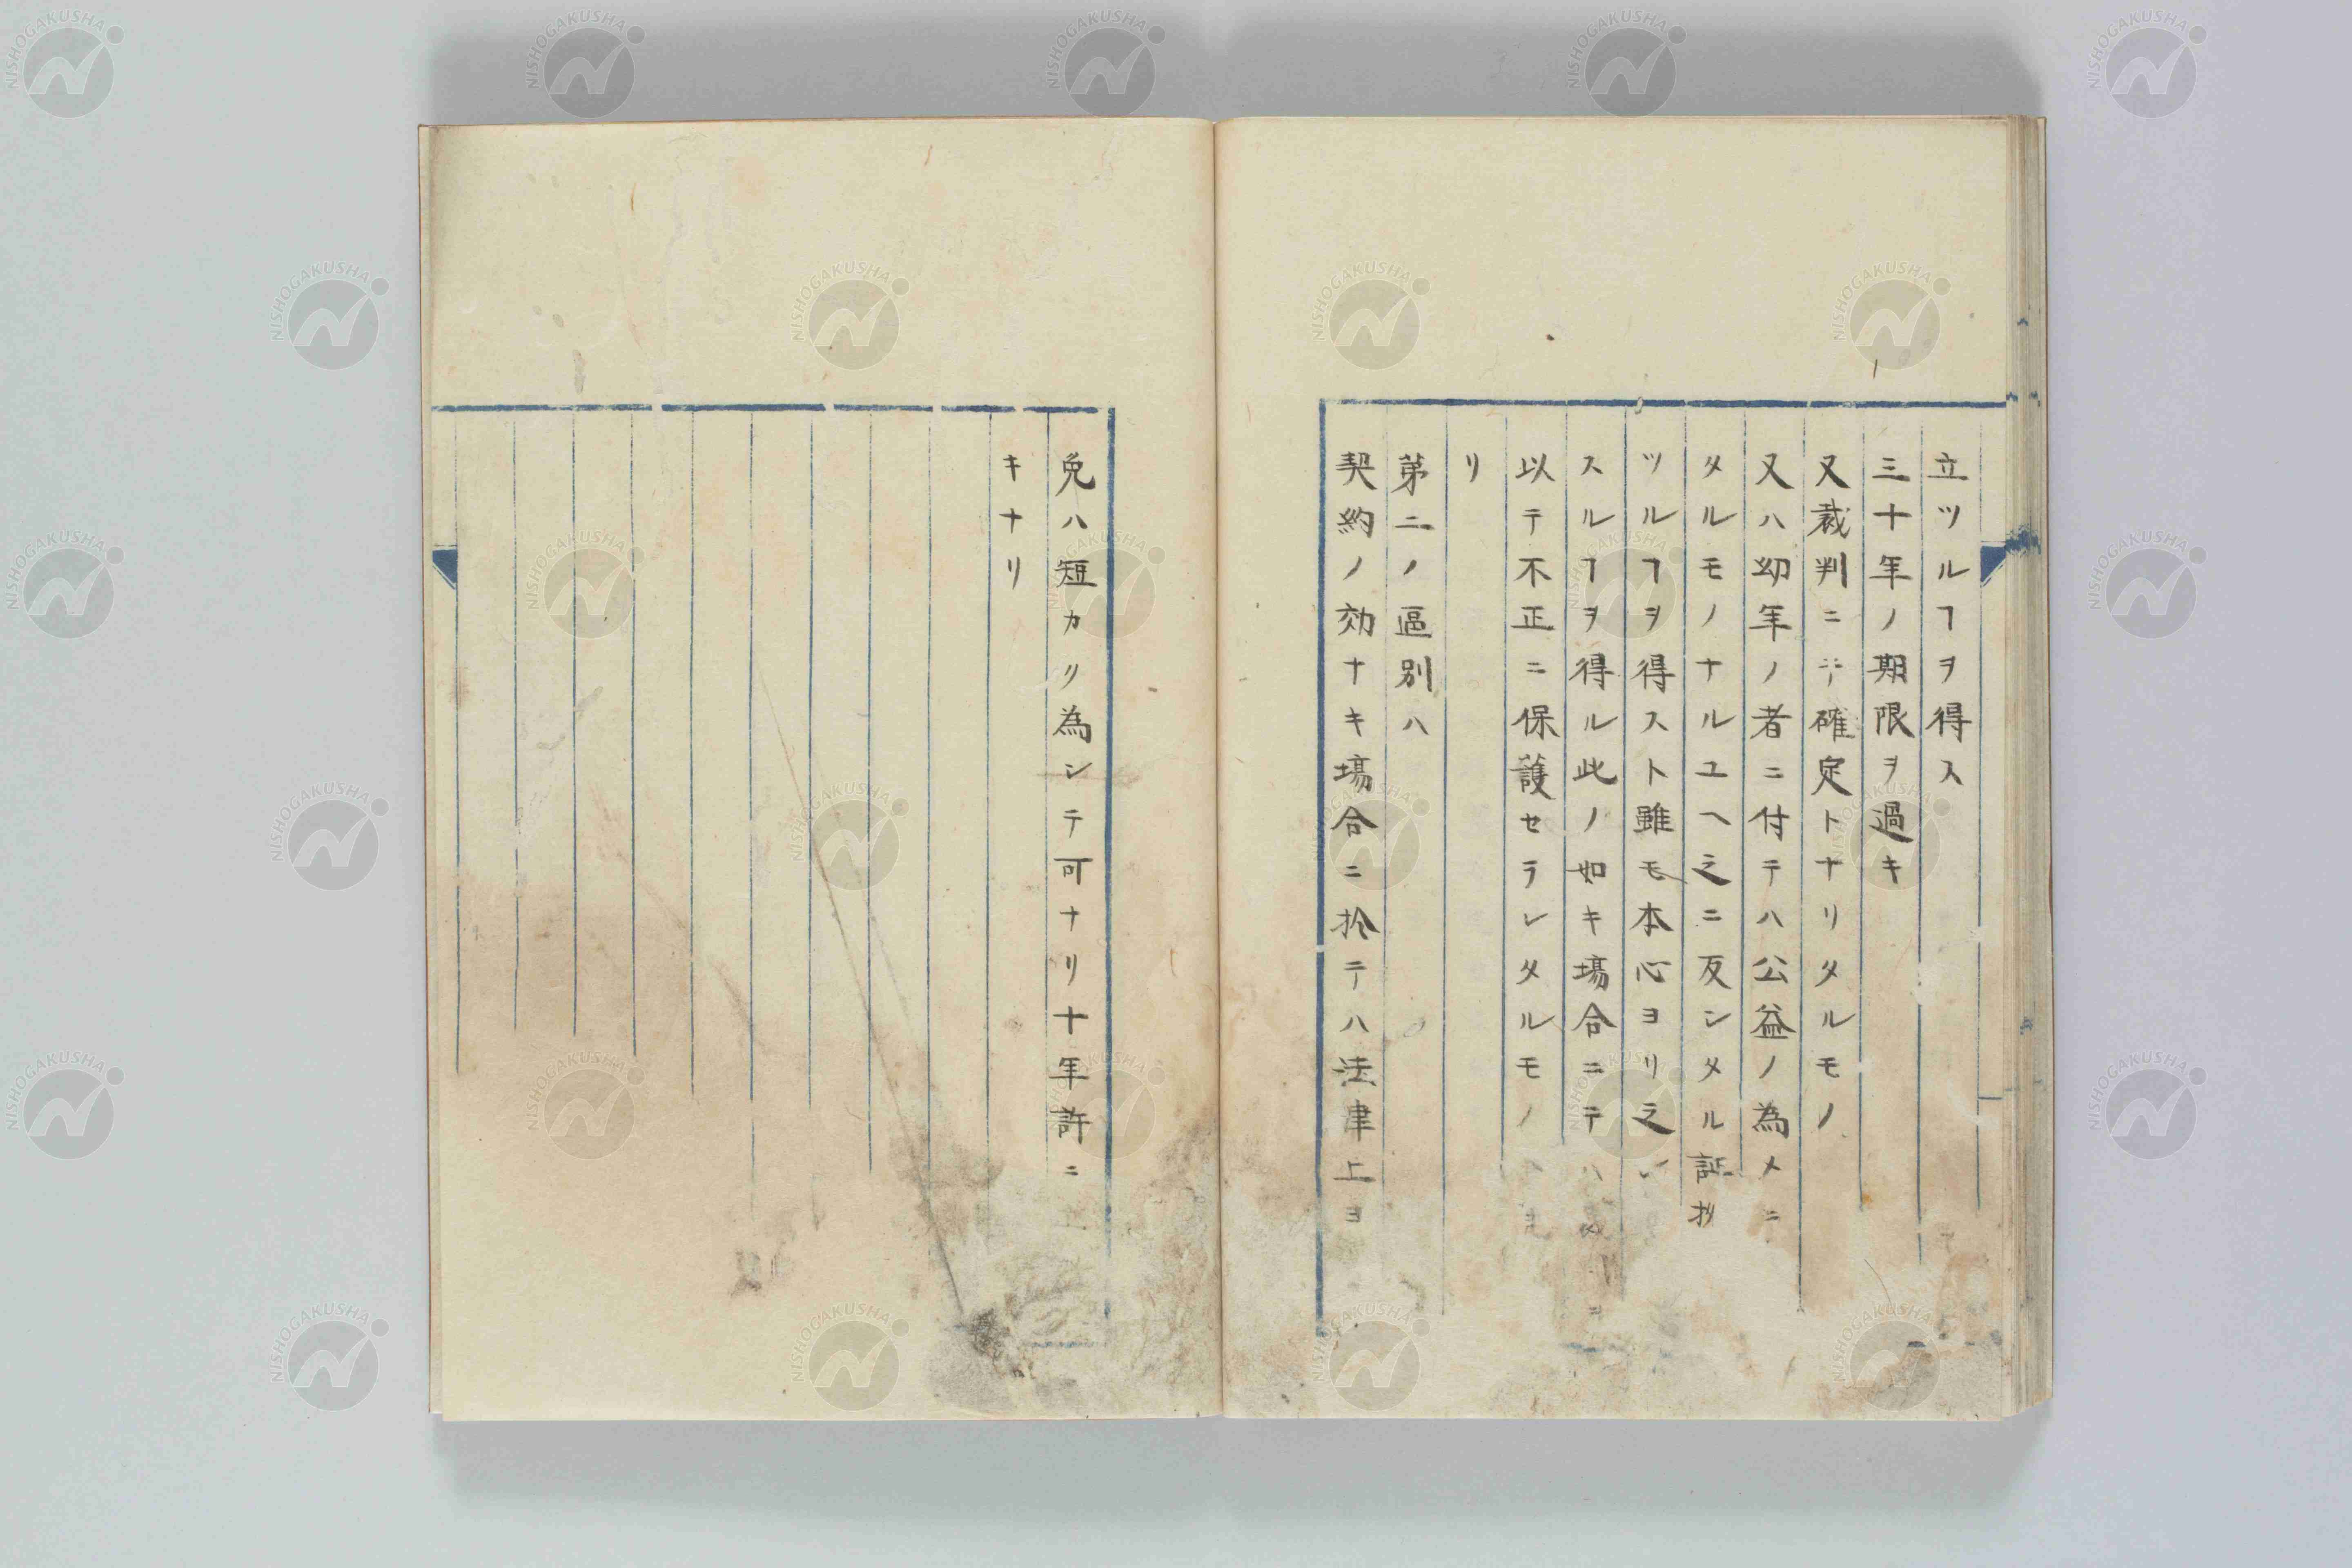 立ツルヿヲ得ス
三十年ノ期限ヲ過キ
又裁判ニテ確定トナリタルモノ
又ハ幼年ノ者ニ付テハ公益ノ為メニ
タルモノナルユヘ之ニ反シタル証抄
ツルヿヲ得スト雖モ本心ヨリ之
スルヿヲ得ル此ノ如キ場合ニテハ
以テ不正ニ保護セラレタルモノ
リ
第二ノ區別ハ
契約ノ効ナキ場合ニ於テハ法律上ヨ
免ハ短カリ為シテ可ナリ十年許ニ
キナリ
NISHOGAKUSHA